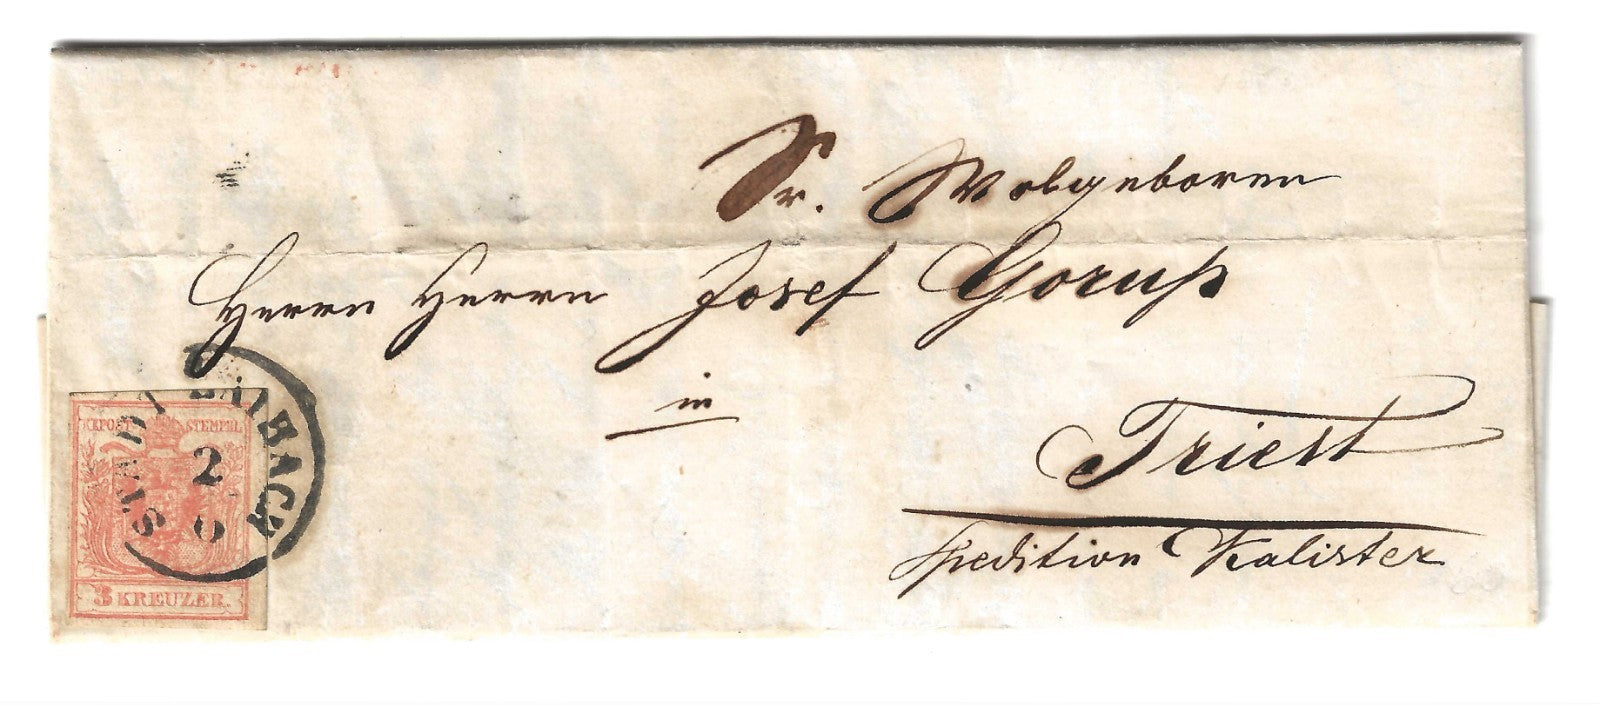 Sr. Wolgeboren
Herrn Herrn Josef Gorup
in
Triest
Spedition Kalister
STADT LAIBACH
2
KKPOST STEMPEL
3 KREUZER.